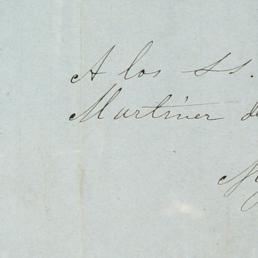 A los SS.
Martinez de